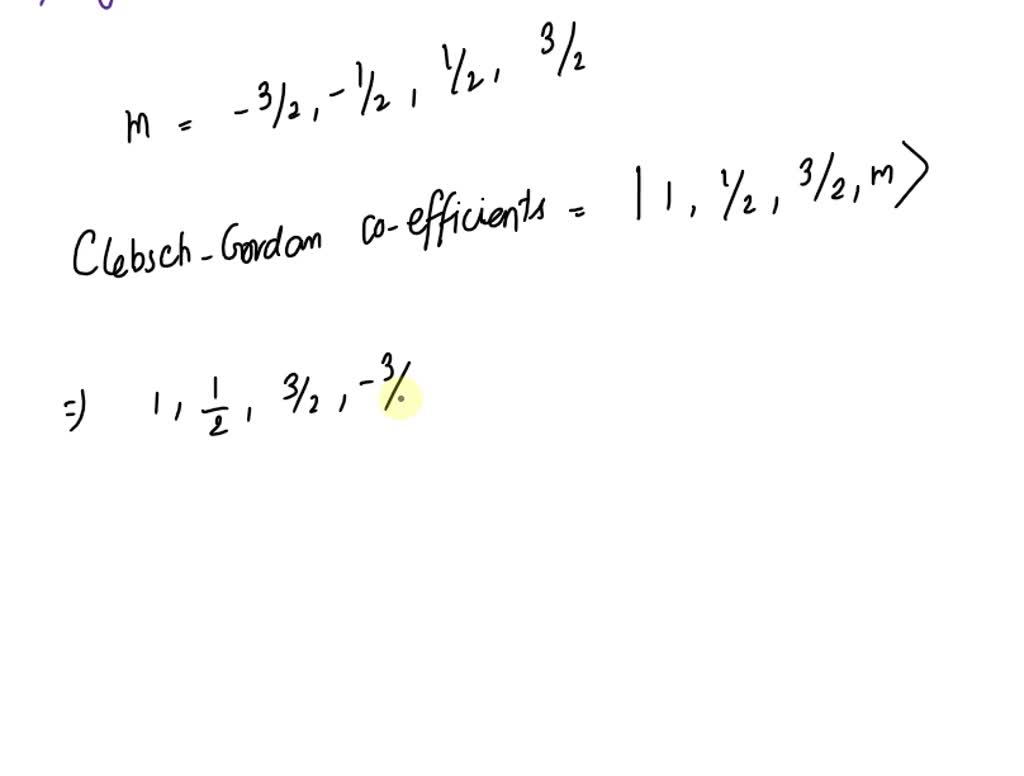 m = -3/2, -1/2, 1/2, 3/2
Clebsch-Gordan co-efficients = | 1, 1/2, 3/2, m ⟩
⇒ 1, 1/2, 3/2, -3/